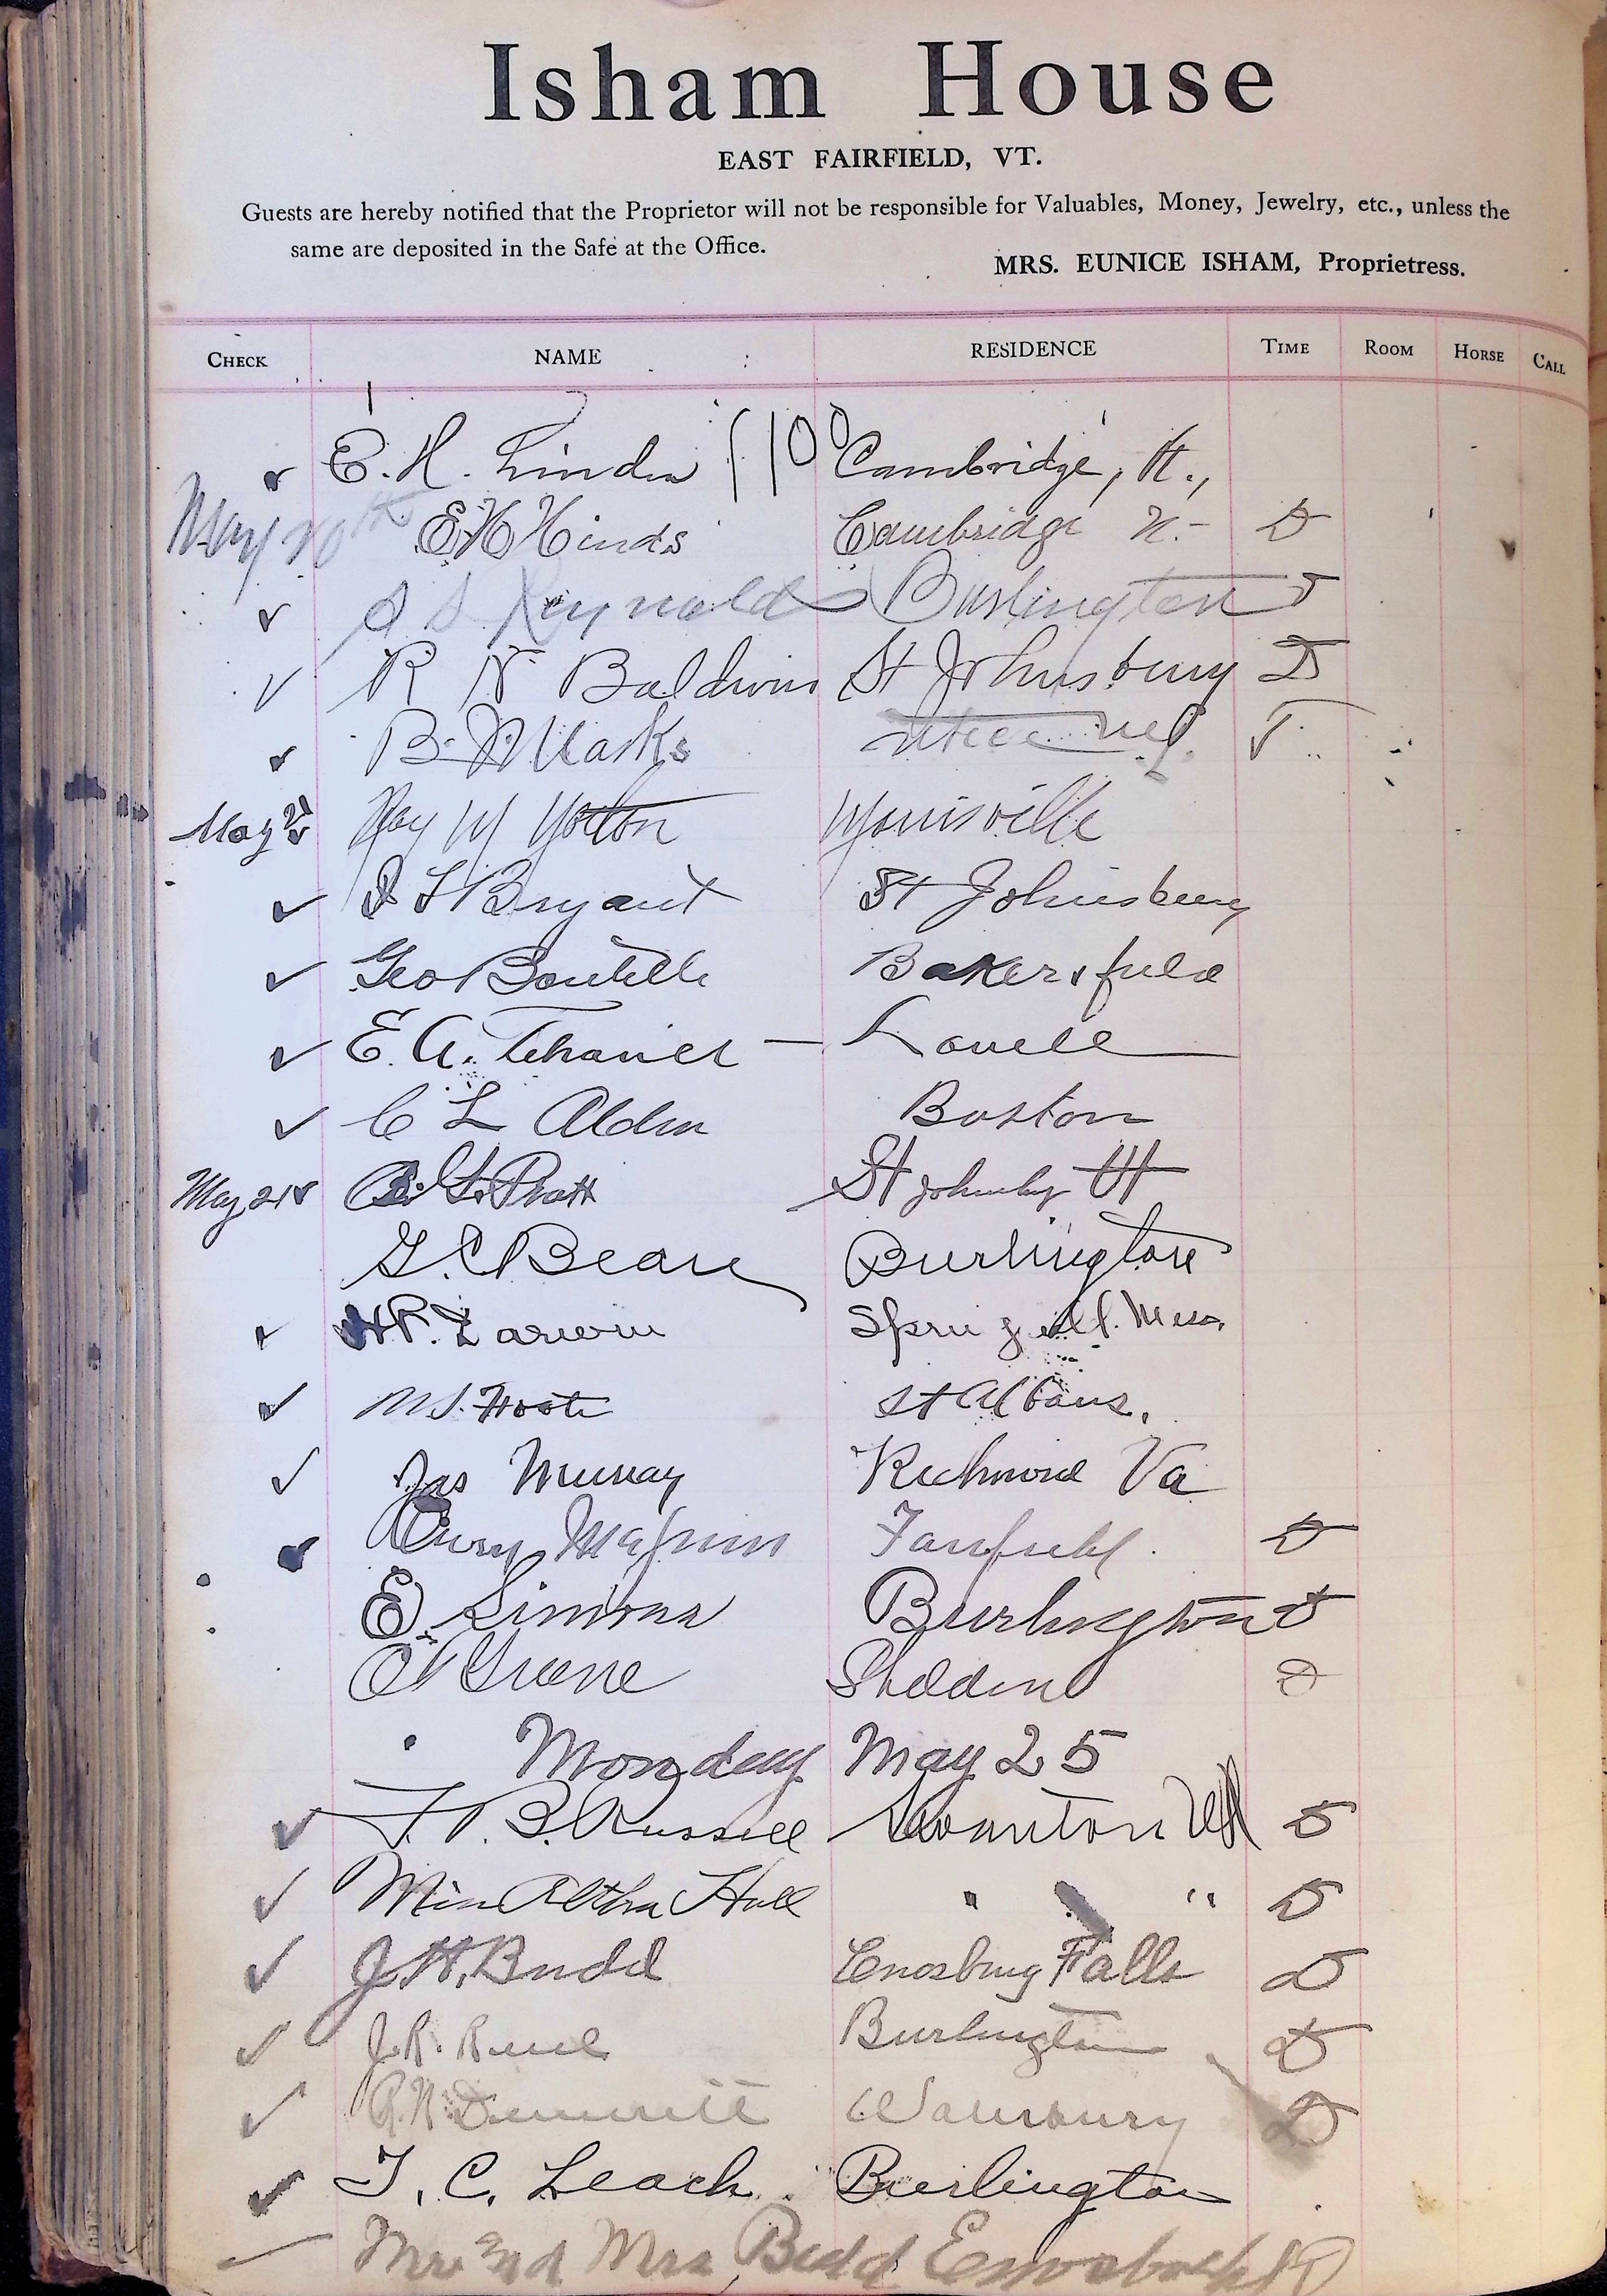 Isham House
EAST FAIRFIELD, VT.
Guests are hereby notified that the Proprietor will not be responsible for Valuables, Money, Jewelry, etc., unless the
same are deposited in the Safe at the Office.
MRS. EUNICE ISHAM, Proprietress.
CHECK NAME RESIDENCE TIME ROOM HORSE CALL
E. H. Cambridge, Vt.,
May 20th E H Hinds Cambridge Vt. D
S S Reynolds Burlington
R N Baldwin St Johnsbury D
B. Marks
May Ray M Morrisville
Bryant St Johnsbury
Geo Boutelle Bakersfield
E. A. Lowell
C L Alden Boston
May 21 Pratt St Johnsby Vt
G. C Bean Burlington
H P. Springfield. Mass.
M S. Foote St Albans.
Jas Murray Richmond Va
Fairfield. D
E Simons Burlington
Greene Sheldon D
Monday May 25
F. B. Russell Swanton Vt D
Miss Altha Hall " " D
J. H. Budd Enosburg Falls D
J. R. Burlington D
Waterbury D
T. C. Leach. Burlington
Mr and Mrs Budd